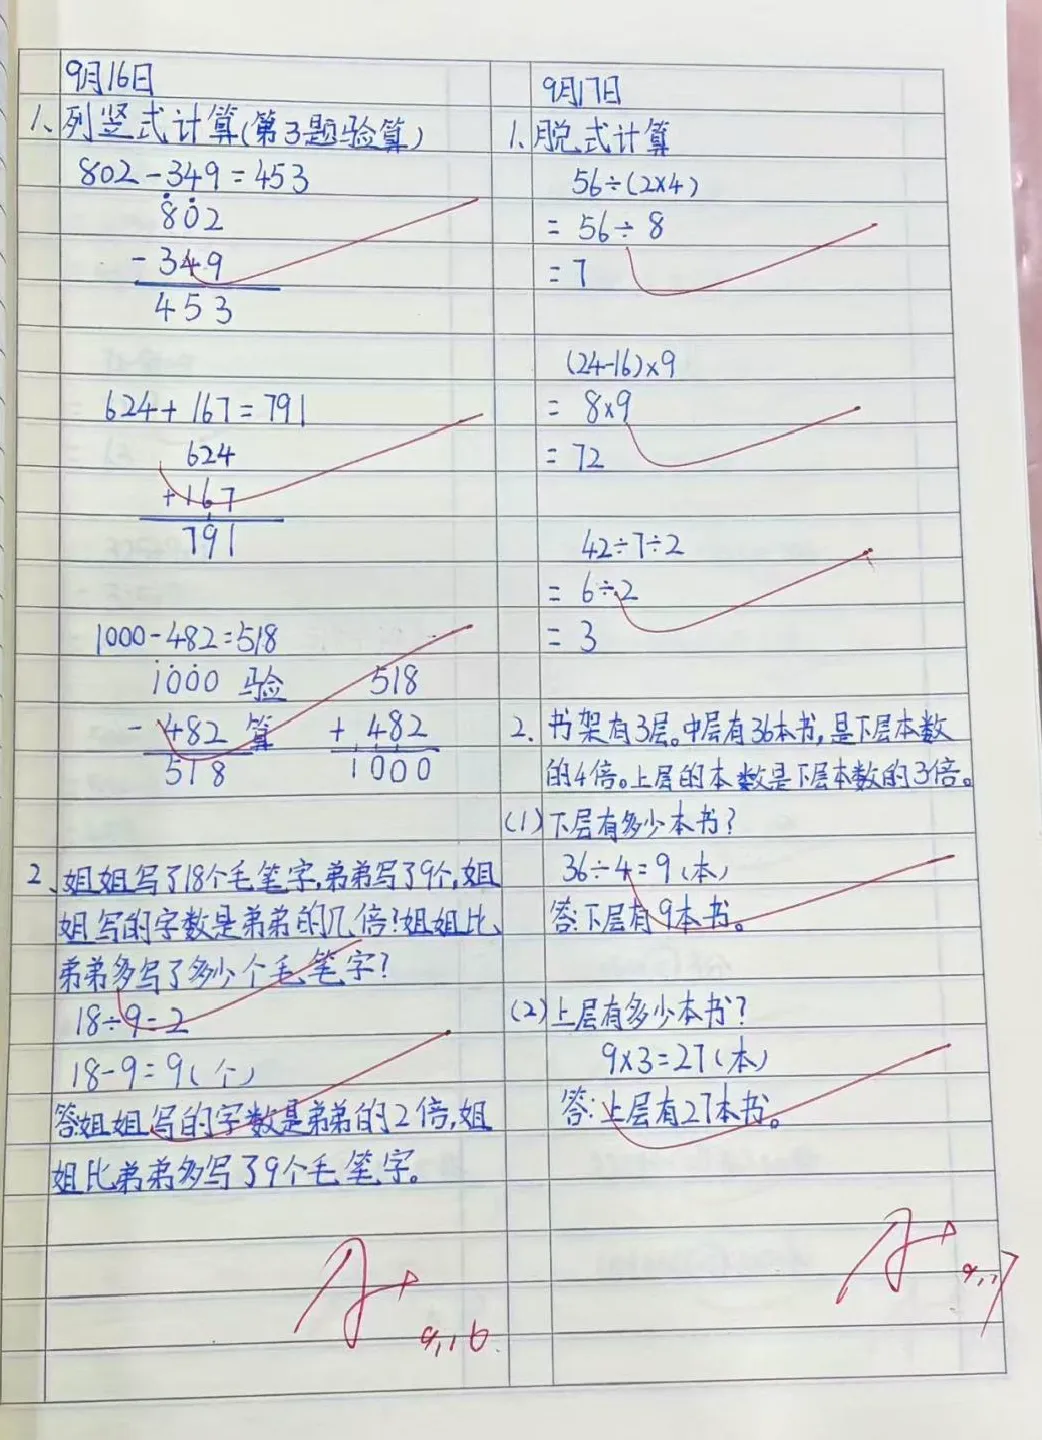 9月16日
1、列竖式计算(第3题验算)
802-349=453
802
-349
453
624+167=791
624
+167
791
1000-482=518
1000 验 518
-482 算 +482
518 1000
2、姐姐写了18个毛笔字,弟弟写了9个,姐
姐写的字数是弟弟的几倍?姐姐比
弟弟多写了多少个毛笔字?
18÷9=2
18-9=9(个)
答姐姐写的字数是弟弟的2倍,姐
姐比弟弟多写了9个毛笔字。
A+
9.16
9月17日
1、脱式计算
56÷(2×4)
= 56÷8
= 7
(24-16)×9
= 8×9
= 72
42÷7÷2
= 6÷2
= 3
2. 书架有3层。中层有36本书,是下层本数
的4倍。上层的本数是下层本数的3倍。
(1)下层有多少本书?
36÷4=9(本)
答:下层有9本书。
(2)上层有多少本书?
9×3=27(本)
答:上层有27本书。
A+
9.17